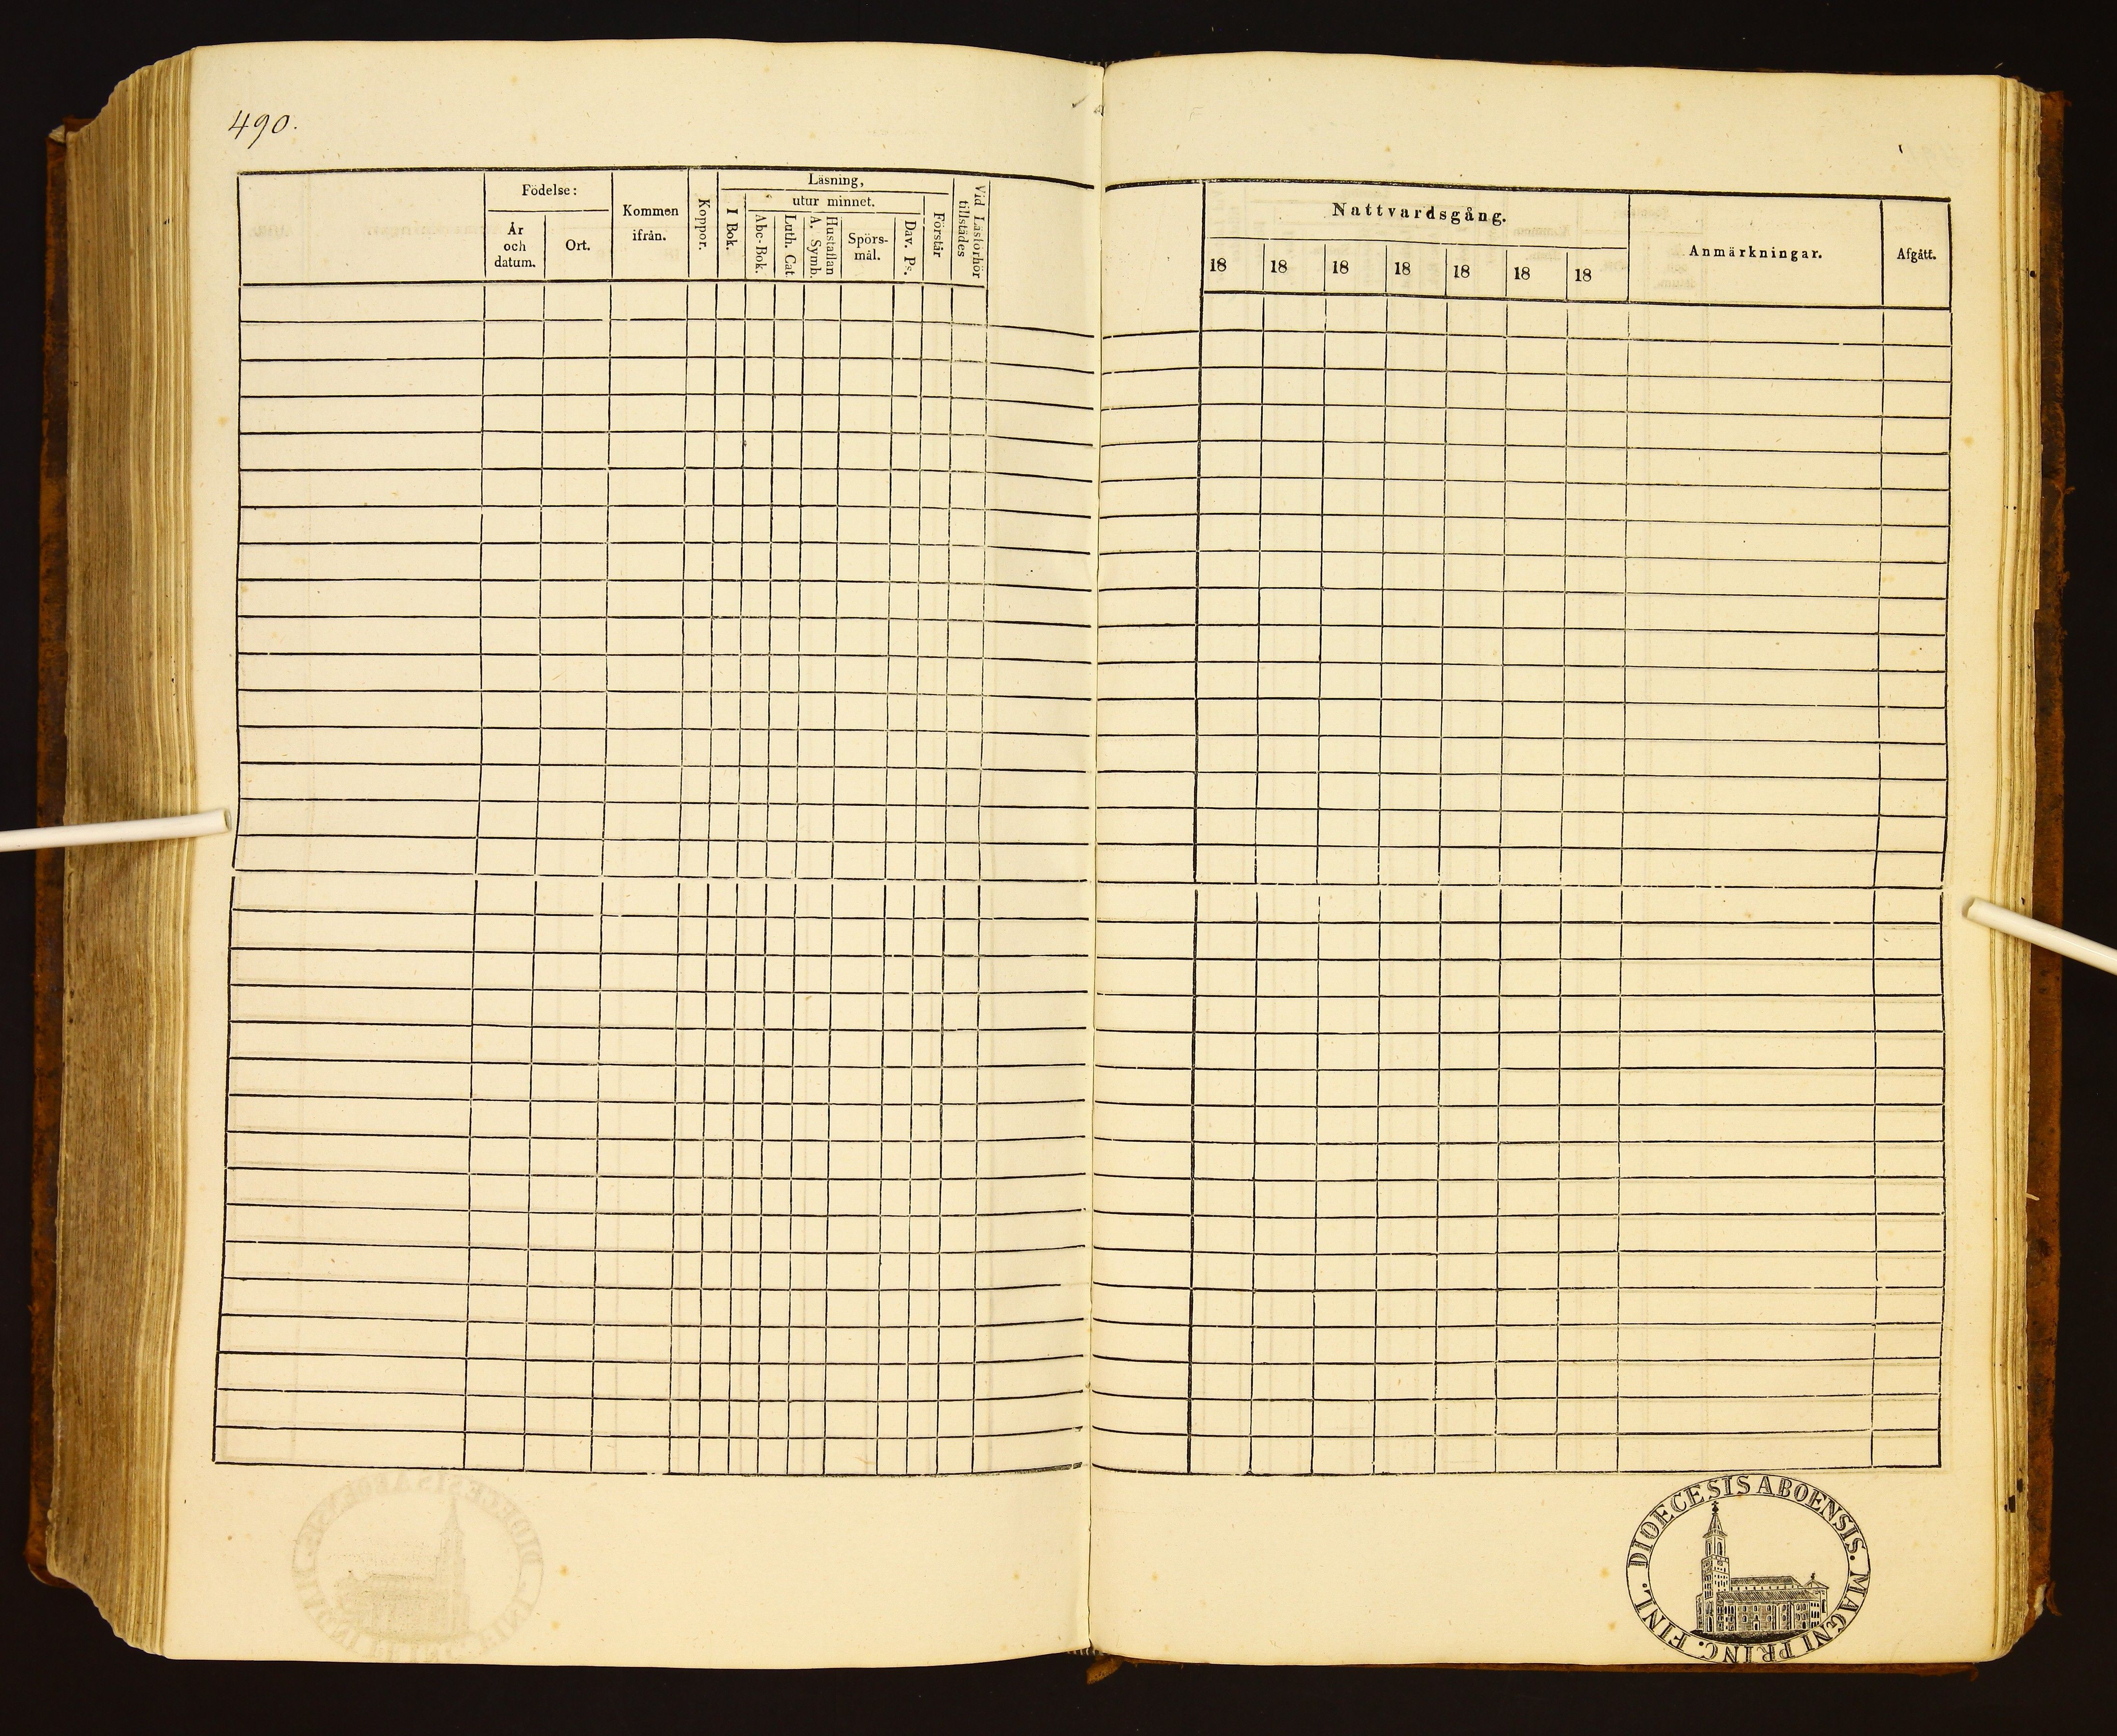 490.
Födelse:
År
och
datum.
Ort.
Kommen
ifrån.
Koppor.
Läsning,
I Bok.
utur minnet.
Abc-Bok.
Luth. Cat.
Hustaflan
A. Symb.
Spörs-
mål.
Dav. Ps.
Förstår
Vid Läsförhör
tillstädes
Nattvardsgång.
18 18 18 18 18 18 18
Anmärkningar.
Afgått.
DIOECESIS ABOENSIS. MAGNI PRINC. FINL.